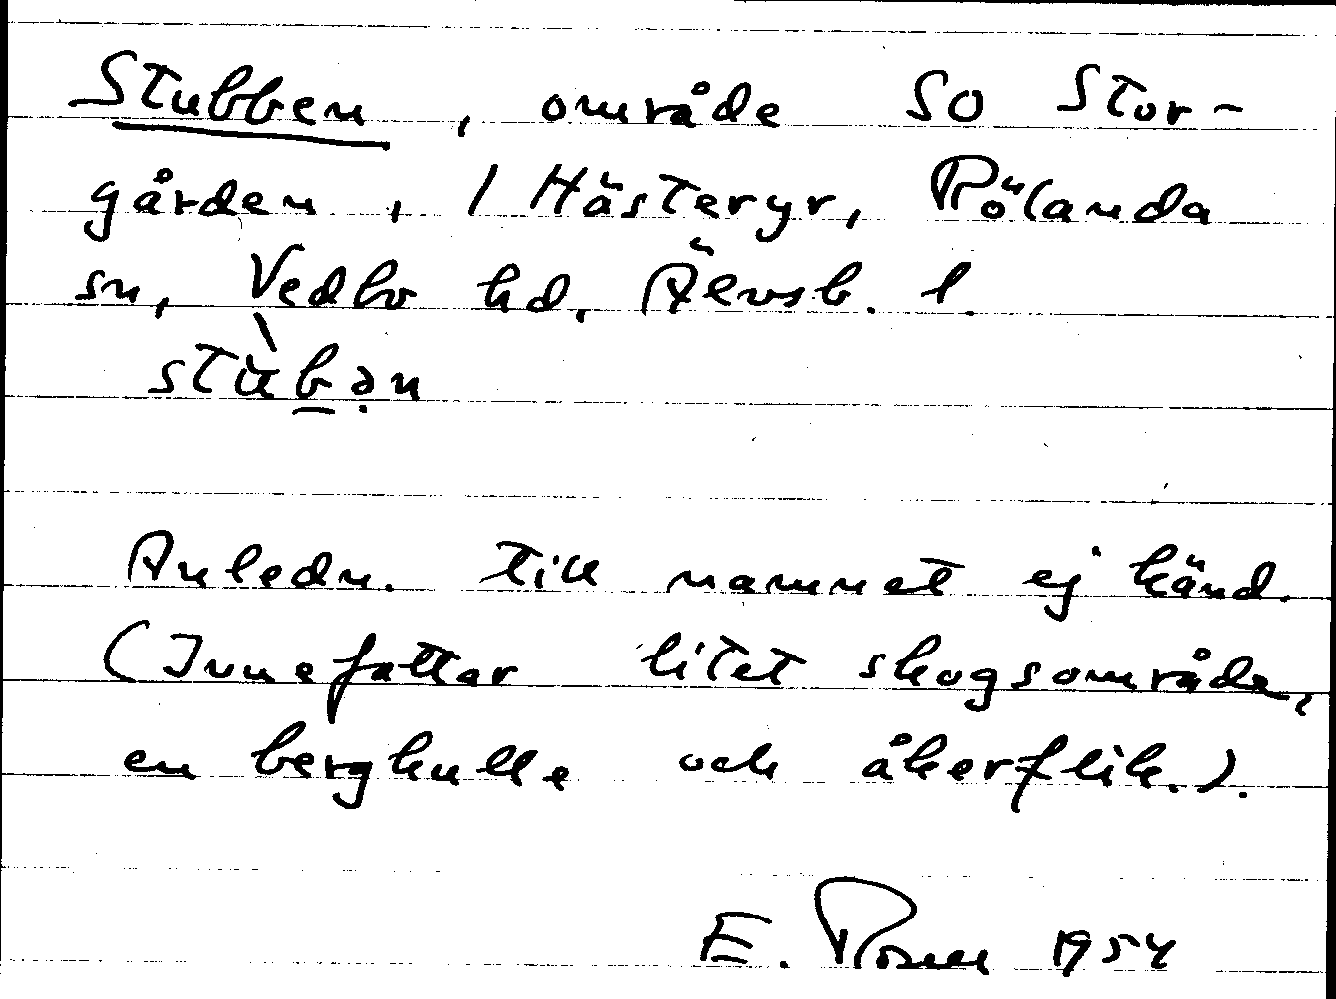 Stubben, område SO Stor-
gården, 1 Hästeryr, Rölanda
sn, Vedbo hd, Älvsb. l.
stὺb̲ə̣n
Anledn. till namnet ej känd.
(Innefattar litet skogsområde,
en bergkulle och åkerflik.).
E. Rosell 1954